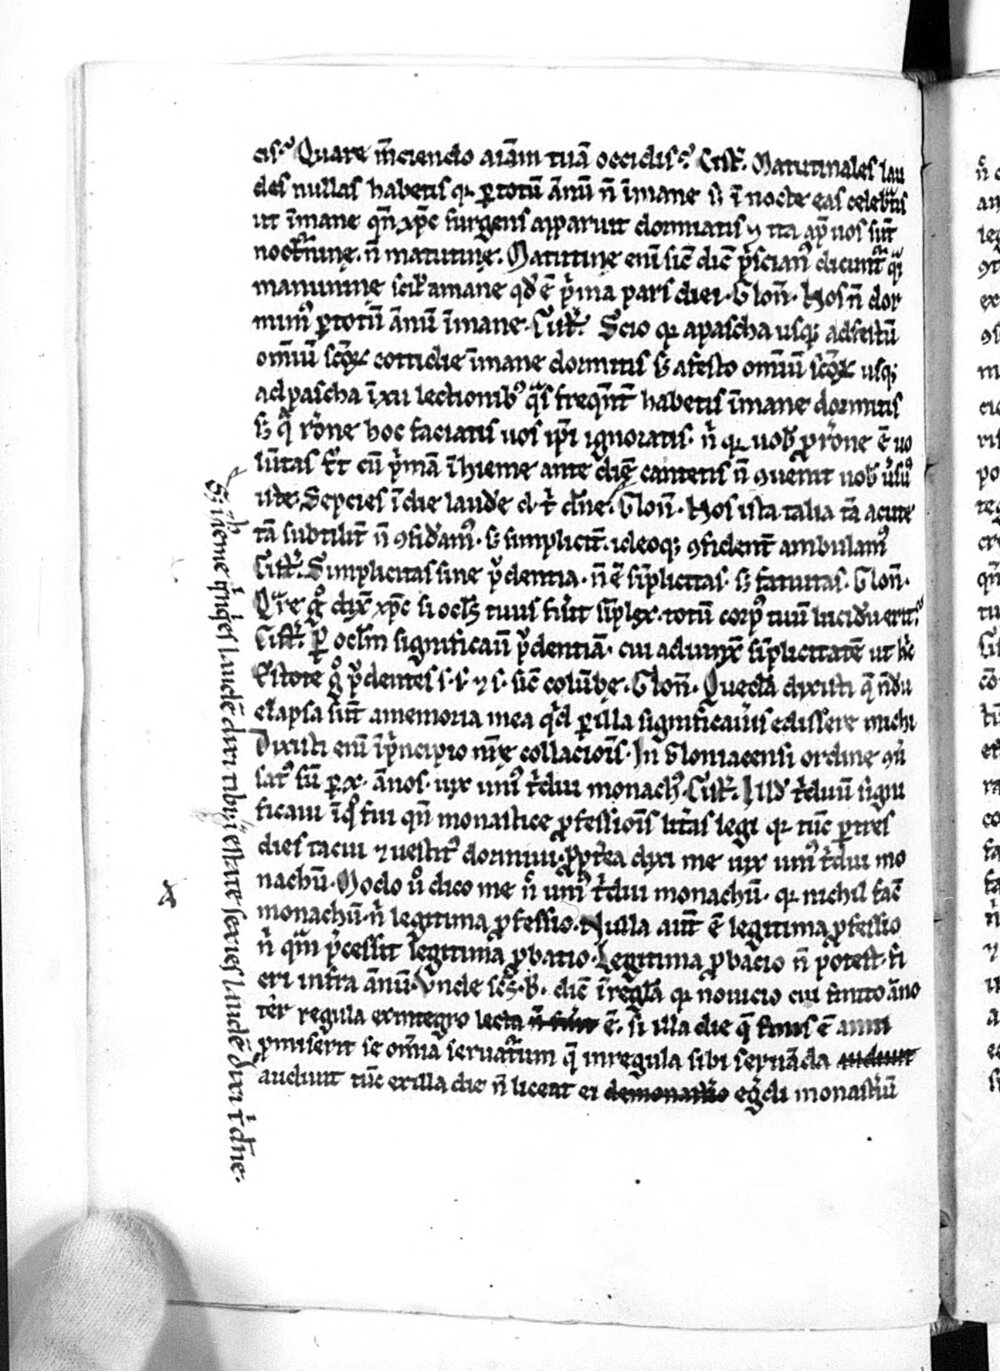 cis.᷒ Quare m̄ciendo aīam tuā occidis.᷒ Cist̄. Matutinales lau
des nullas habetis qꝛ ꝑ totū ānū n̄ ī mane s; ī nocte eas celebt̄is
ut ī mane qn̄ xp̄c surgens apparuit dormiatis ⁊ ita ap̄ uos sūt
nocturnīnę. n̄ matutinę. Matutine enī sic̄ dic̄ p̄scianꝰ dicunt̄
manunine scil̄ a mane qd̄ ē p̄ma pars diei. Clon̄. Nos n̄ dor
mimꝰ ꝑ totū ānū ī mane. Cist̄. Scio qꝛ a pascha usqꝫ ad festū
omīū sc̄oꝝ cottidie ī mane dormitis s; a festo omīū sc̄oꝝ usqꝫ
ad pascha ī xii lectionibꝰ q̄s freqn̄t̄ habetis ī mane dormitis
s; q̄ r̄one hoc faciatis uos ip̄i ignoratis. n̄ qꝛ uob̄ ꝓ r̄one ē uo
lūtas cū p̄mā ī hieme ante diē cantetis n̄ ꝯuenit uob̄ u̓sꝰ
iste. Sepcies ī die laudē d. t̄ dn̄e. Clon̄. Nos ista talia tā acute
tā subtilit̄ n̄ ꝯsid̄amꝰ. s; simplicit̄. ideoqꝫ ꝯfident̄ ambulamꝰ
Cist̄. Simplicitas sine p̄dentia. n̄ ē sīplicitas. s; fatuitas. Clon̄.
Q̄re g̊ dix̄ xp̄c si ocl̄s tuus fu̓it sīplex. totū corpꝰ tuū lucidū erit.᷒
Cist̄. ꝑ ocl̄m significauit p̄dentiā. cui adiunx̄ sīplicitatē ut h̄
Estote g̊ p̄dentes s. s. ⁊ s. sic̄ colūbę. Clon̄. Quedā dixisti
elapsa sūt a memoria mea qd̄ ꝑ illa significaueris edissere michi
Dixisti enī ī p̄ncipio nr̄ę collacionis. In Cloniacensi ordine
satꝰ sū ꝑ x. annos. uix unꝰ t̄dui monachꝰ. Cist̄. Illd̄ t̄duū signi
ficaui ī qͦ fui qn̄ monastice ꝓfessionis litt̄as legi qꝛ tūc ꝑ tres
dies tacui ⁊ uestitꝰ dormiui. ꝓpt̄ea dixi me uix unꝰ t̄dui mo
nachū. Modo u̓o dico me n̄ unꝰ t̄dui monachū. qꝛ nichil fac̄
monachū. n̄ legitima ꝓfessio. Nulla aut̄ ē legitima ꝓfessio
n̄ quā p̄cessit legitima ꝓbatio. Legitima ꝓbacio n̄ potest fi
eri infra annū. Vnde sc̄s .B. dic̄ ī regula qꝛ nouicio cui finito anno
ter regula ex integro lecta n̄ fu̓it ē. si illa die q̄ finis ē anni
ꝓmiserit se omīa seruaturum q̄ in regula sibi seruāda audiuit
audiuit tūc ex illa die n̄ liceat ei de monast̄io eg̓di monasteriū
S; ī hieme q̄nqes laudē dixi tibi. ī estate sexies laudē dixi t̄ dn̄e.
A